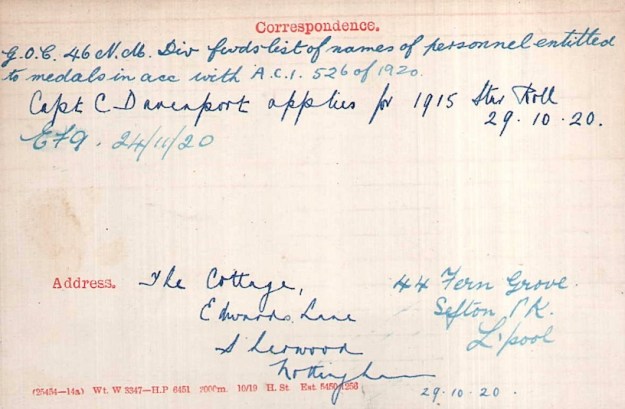 Correspondence.
G.O.C. 46 N.M. Div fwds list of names of personnel entitled
to medals in acc with A.C.I. 526 of 1920.
Capt C Davenport applies for 1915 Star Roll
29.10.20.
EF9. 24/11/20
Address. The Cottage,
Edwards Lane
Sherwood
Nottingham
44 Fern Grove.
Sefton PK.
L'pool
29.10.20.
(25454—14a) Wt. W 3347—H.P 6451 2000m. 10/19 H. St. Est.